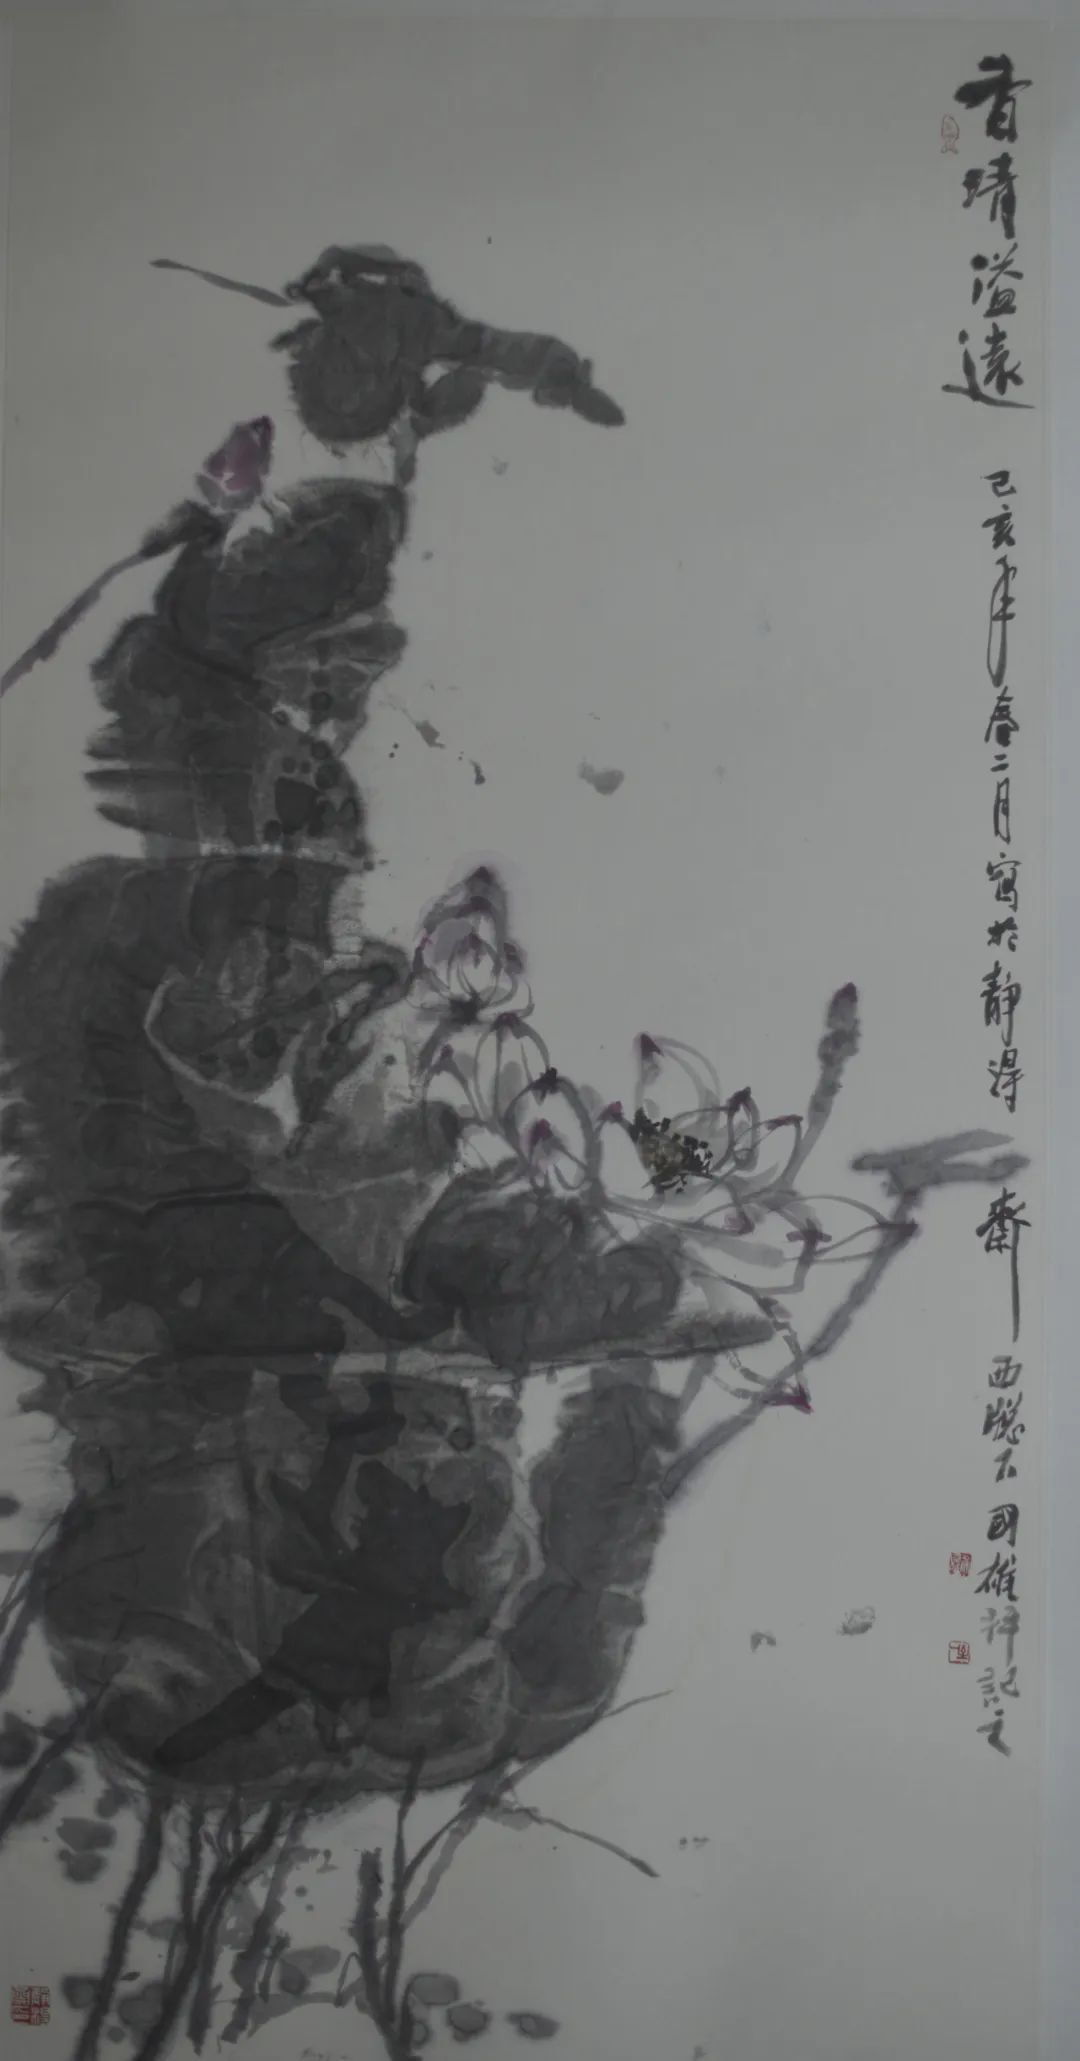 香清溢遠
己亥年春二月寫於靜得齋西牕下國雄記之